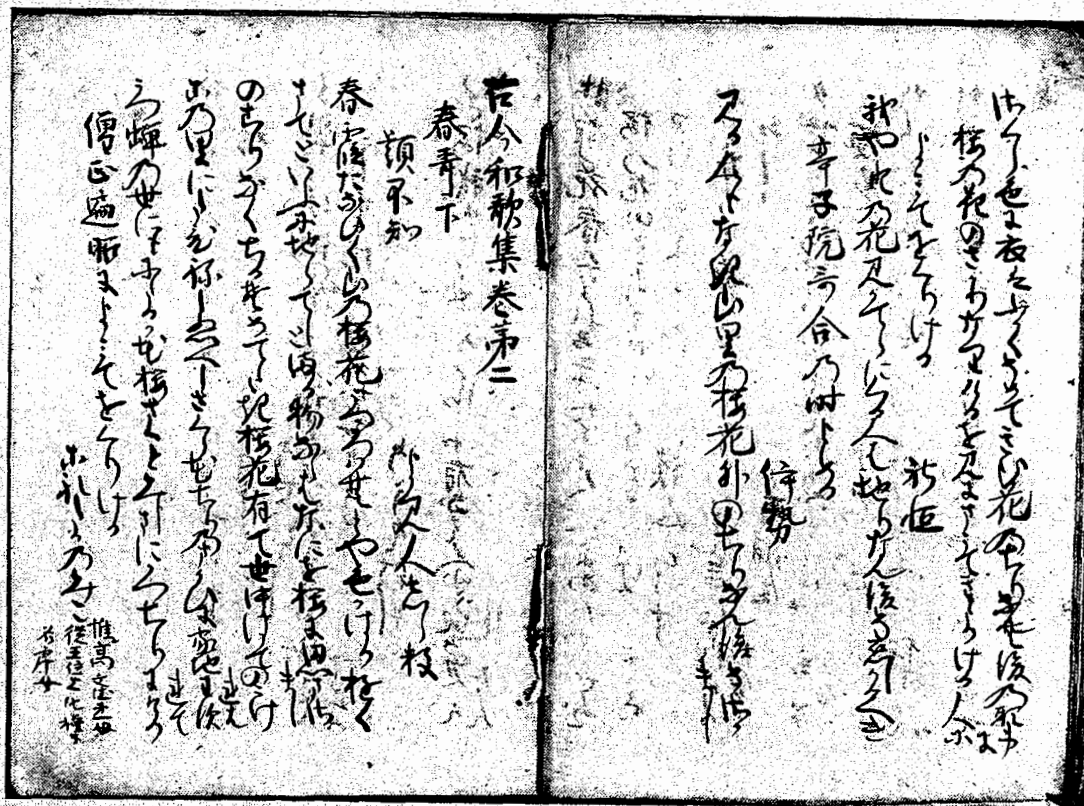 さくら色に衣はふかくそめてきむ花のちりなむ後のかたみに
桜の花のさけりけるを見にまうてきたりける人に
よみてをくりける　躬恒
我やとの花見かてらにくる人は地りなん後そ恋しかるへき
亭子院哥合の時よめる
伊勢
見る人もなき山里の桜花外のちりなん後そさかまし
古今和歌集巻第二
春哥下
題不知
よみ人しらす
春霞たなひく山の桜花うつろはむとや色かはりゆく
まてといふに地らてしとまる物ならはなにを桜に思まさまし
のこりなくちるそめてたき桜花有て世中はてのうけれは
この里にたひねしぬへしさくら花ちりのまかひに家地わすれて
うつ蝉の世にもにたるか花桜さくとみしまにかつちりにけり
僧正遍昭によみてをくりける
これたかのみこ